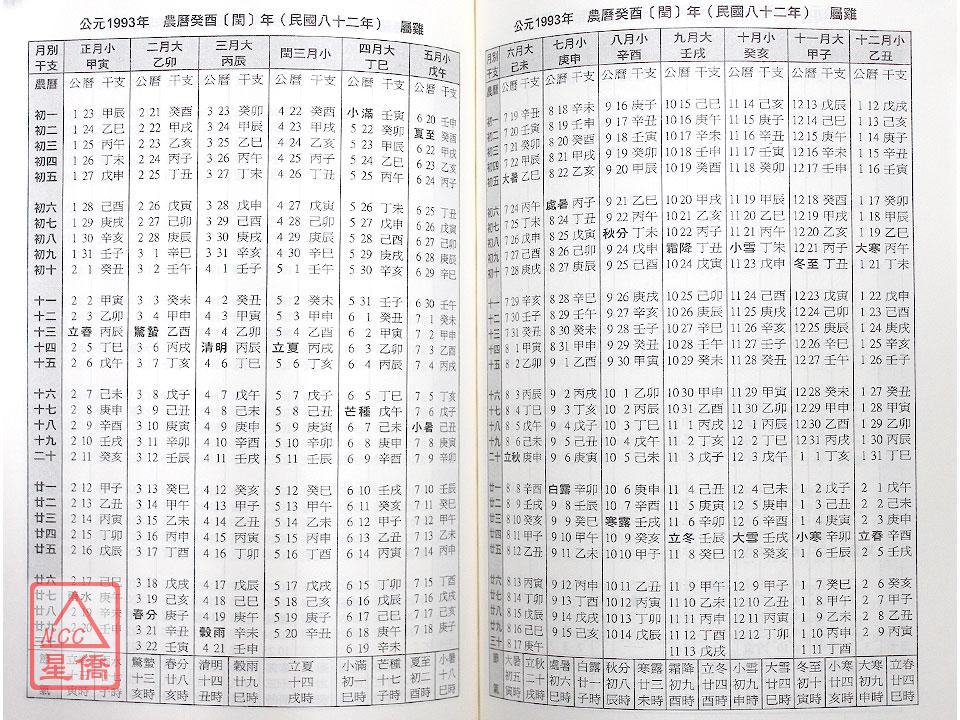 公元1993年 農曆癸酉〔閏〕年（民國八十二年） 屬雞
月別 正月小 二月大 三月大 閏三月小 四月大 五月小
干支 甲寅 乙卯 丙辰 丁巳 戊午
農曆 公曆 干支 公曆 干支 公曆 干支 公曆 干支 公曆 干支 公曆 干支
初一 1 23 甲辰 2 21 癸酉 3 23 癸卯 4 22 癸酉 小滿 壬寅 6 20 壬申
初二 1 24 乙巳 2 22 甲戌 3 24 甲辰 4 23 甲戌 5 22 癸卯 夏至 癸酉
初三 1 25 丙午 2 23 乙亥 3 25 乙巳 4 24 乙亥 5 23 甲辰 6 22 甲戌
初四 1 26 丁未 2 24 丙子 3 26 丙午 4 25 丙子 5 24 乙巳 6 23 乙亥
初五 1 27 戊申 2 25 丁丑 3 27 丁未 4 26 丁丑 5 25 丙午 6 24 丙子
初六 1 28 己酉 2 26 戊寅 3 28 戊申 4 27 戊寅 5 26 丁未 6 25 丁丑
初七 1 29 庚戌 2 27 己卯 3 29 己酉 4 28 己卯 5 27 戊申 6 26 戊寅
初八 1 30 辛亥 2 28 庚辰 3 30 庚戌 4 29 庚辰 5 28 己酉 6 27 己卯
初九 1 31 壬子 3 1 辛巳 3 31 辛亥 4 30 辛巳 5 29 庚戌 6 28 庚辰
初十 2 1 癸丑 3 2 壬午 4 1 壬子 5 1 壬午 5 30 辛亥 6 29 辛巳
十一 2 2 甲寅 3 3 癸未 4 2 癸丑 5 2 癸未 5 31 壬子 6 30 壬午
十二 2 3 乙卯 3 4 甲申 4 3 甲寅 5 3 甲申 6 1 癸丑 7 1 癸未
十三 立春 丙辰 驚蟄 乙酉 4 4 乙卯 5 4 乙酉 6 2 甲寅 7 2 甲申
十四 2 5 丁巳 3 6 丙戌 清明 丙辰 立夏 丙戌 6 3 乙卯 7 3 乙酉
十五 2 6 戊午 3 7 丁亥 4 6 丁巳 5 6 丁亥 6 4 丙辰 7 4 丙戌
十六 2 7 己未 3 8 戊子 4 7 戊午 5 7 戊子 6 5 丁巳 7 5 丁亥
十七 2 8 庚申 3 9 己丑 4 8 己未 5 8 己丑 芒種 戊午 7 6 戊子
十八 2 9 辛酉 3 10 庚寅 4 9 庚申 5 9 庚寅 6 7 己未 小暑 己丑
十九 2 10 壬戌 3 11 辛卯 4 10 辛酉 5 10 辛卯 6 8 庚申 7 8 庚寅
二十 2 11 癸亥 3 12 壬辰 4 11 壬戌 5 11 壬辰 6 9 辛酉 7 9 辛卯
廿一 2 12 甲子 3 13 癸巳 4 12 癸亥 5 12 癸巳 6 10 壬戌 7 10 壬辰
廿二 2 13 乙丑 3 14 甲午 4 13 甲子 5 13 甲午 6 11 癸亥 7 11 癸巳
廿三 2 14 丙寅 3 15 乙未 4 14 乙丑 5 14 乙未 6 12 甲子 7 12 甲午
廿四 2 15 丁卯 3 16 丙申 4 15 丙寅 5 15 丙申 6 13 乙丑 7 13 乙未
廿五 2 16 戊辰 3 17 丁酉 4 16 丁卯 5 16 丁酉 6 14 丙寅 7 14 丙申
廿六 2 17 己巳 3 18 戊戌 4 17 戊辰 5 17 戊戌 6 15 丁卯 7 15 丁酉
廿七 水 庚午 3 19 己亥 4 18 己巳 5 18 己亥 6 16 戊辰 7 16 戊戌
廿八 2 19 辛未 春分 庚子 4 19 庚午 5 19 庚子 6 17 己巳 7 17 己亥
廿九 2 20 壬申 3 21 辛丑 穀雨 辛未 5 20 辛丑 6 18 庚午 7 18 庚子
3 22 壬寅 4 21 壬申 6 19 辛未
節 驚蟄 春分 清明 穀雨 立夏 小滿 芒種 夏至 小暑
十三 廿八 十四 廿九 十四 初一 十七 初二 十八
氣 寅時 子時 亥時 亥時 丑時 巳時 戌時 巳時
NCC
星僑
公元1993年 農曆癸酉〔閏〕年（民國八十二年） 屬雞
月別 六月大 七月小 八月小 九月大 十月小 十一月大 十二月小
干支 己未 庚申 辛酉 壬戌 癸亥 甲子 乙丑
農曆 公曆 干支 公曆 干支 公曆 干支 公曆 干支 公曆 干支 公曆 干支 公曆 干支
初一 7 19 辛丑 8 18 辛未 9 16 庚子 10 15 己巳 11 14 己亥 12 13 戊辰 1 12 戊戌
初二 7 20 壬寅 8 19 壬申 9 17 辛丑 10 16 庚午 11 15 庚子 12 14 己巳 1 13 己亥
初三 7 21 癸卯 8 20 癸酉 9 18 壬寅 10 17 辛未 11 16 辛丑 12 15 庚午 1 14 庚子
初四 7 22 甲辰 8 21 甲戌 9 19 癸卯 10 18 壬申 11 17 壬寅 12 16 辛未 1 15 辛丑
初五 大暑 乙巳 8 22 乙亥 9 20 甲辰 10 19 癸酉 11 18 癸卯 12 17 壬申 1 16 壬寅
初六 7 24 丙午 處暑 丙子 9 21 乙巳 10 20 甲戌 11 19 甲辰 12 18 癸酉 1 17 癸卯
初七 7 25 丁未 8 24 丁丑 9 22 丙午 10 21 乙亥 11 20 乙巳 12 19 甲戌 1 18 甲辰
初八 7 26 戊申 8 25 戊寅 秋分 丁未 10 22 丙子 11 21 丙午 12 20 乙亥 1 19 乙巳
初九 7 27 己酉 8 26 己卯 9 24 戊申 霜降 丁丑 小雪 丁未 12 21 丙子 大寒 丙午
初十 7 28 庚戌 8 27 庚辰 9 25 己酉 10 24 戊寅 11 23 戊申 冬至 丁丑 1 21 丁未
十一 7 29 辛亥 8 28 辛巳 9 26 庚戌 10 25 己卯 11 24 己酉 12 23 戊寅 1 22 戊申
十二 7 30 壬子 8 29 壬午 9 27 辛亥 10 26 庚辰 11 25 庚戌 12 24 己卯 1 23 己酉
十三 7 31 癸丑 8 30 癸未 9 28 壬子 10 27 辛巳 11 26 辛亥 12 25 庚辰 1 24 庚戌
十四 8 1 甲寅 8 31 甲申 9 29 癸丑 10 28 壬午 11 27 壬子 12 26 辛巳 1 25 辛亥
十五 8 2 乙卯 9 1 乙酉 9 30 甲寅 10 29 癸未 11 28 癸丑 12 27 壬午 1 26 壬子
十六 8 3 丙辰 9 2 丙戌 10 1 乙卯 10 30 甲申 11 29 甲寅 12 28 癸未 1 27 癸丑
十七 8 4 丁巳 9 3 丁亥 10 2 丙辰 10 31 乙酉 11 30 乙卯 12 29 甲申 1 28 甲寅
十八 8 5 戊午 9 4 戊子 10 3 丁巳 11 1 丙戌 12 1 丙辰 12 30 乙酉 1 29 乙卯
十九 8 6 己未 9 5 己丑 10 4 戊午 11 2 丁亥 12 2 丁巳 12 31 丙戌 1 30 丙辰
二十 立秋 庚申 9 6 庚寅 10 5 己未 11 3 戊子 12 3 戊午 1 1 丁亥 1 31 丁巳
廿一 8 8 辛酉 白露 辛卯 10 6 庚申 11 4 己丑 12 4 己未 1 2 戊子 2 1 戊午
廿二 8 9 壬戌 9 8 壬辰 10 7 辛酉 11 5 庚寅 12 5 庚申 1 3 己丑 2 2 己未
廿三 8 10 癸亥 9 9 癸巳 寒露 壬戌 11 6 辛卯 12 6 辛酉 1 4 庚寅 2 3 庚申
廿四 8 11 甲子 9 10 甲午 10 9 癸亥 立冬 壬辰 大雪 壬戌 小寒 辛卯 立春 辛酉
廿五 8 12 乙丑 9 11 乙未 10 10 甲子 11 8 癸巳 12 8 癸亥 1 6 壬辰 2 5 壬戌
廿六 8 13 丙寅 9 12 丙申 10 11 乙丑 11 9 甲午 12 9 甲子 1 7 癸巳 2 6 癸亥
廿七 8 14 丁卯 9 13 丁酉 10 12 丙寅 11 10 乙未 12 10 乙丑 1 8 甲午 2 7 甲子
廿八 8 15 戊辰 9 14 戊戌 10 13 丁卯 11 11 丙申 12 11 丙寅 1 9 乙未 2 8 乙丑
廿九 8 16 己巳 9 15 己亥 10 14 戊辰 11 12 丁酉 12 12 丁卯 1 10 丙申 2 9 丙寅
三十 8 17 庚午 11 13 戊戌 1 11 丁酉
節 大暑 立秋 處暑 白露 秋分 寒露 霜降 立冬 小雪 大雪 冬至 小寒 大寒 立春
初五 二十 初六 廿一 初八 廿三 初九 廿四 初九 廿四 初十 廿四 初九 廿四
氣